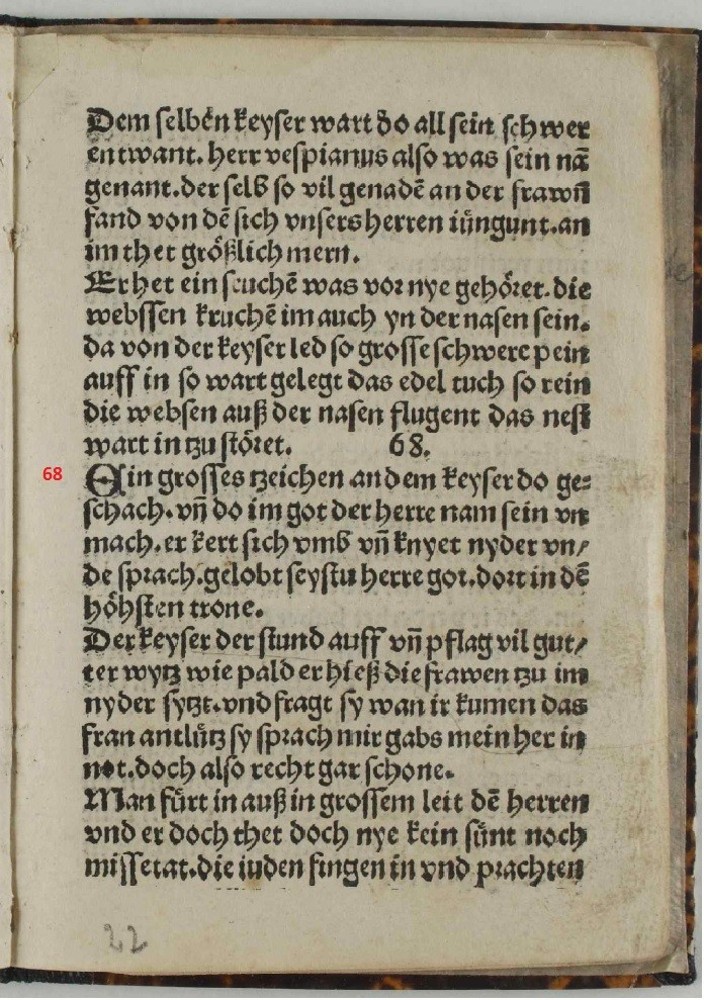 Dem selben keyser wart do all sein schwer
entwant. herr vespianus also was sein nā
genant.der selb so vil genadē an der frawn̄
fand von dē sich vnsers herren iüngunt.an
im thet größlich mern.
Er het ein seuchē was vor nye gehöret.die
webssen kruchē im auch yn der nasen sein.
da von der keyser led so grosse schwere pein
auff in so wart gelegt das edel tuch so rein
die websen auß der nasen flugent das nest
wart in tzu störet. 68.
68 Ein grosses tzeichen an dem keyser do ge⸗
schach. vn̄ do im got der herre nam sein vn
mach. er kert sich vmb vn̄ knyet nyder vn/
de sprach.gelobt seystu herre got.dort in dē
höhsten trone.
Der keyser der stund auff vn̄ pflag vil gut/
ter wytz wie pald er hieß die frawen tzu im
nyder sytzt.vnd fragt sy wan ir kumen das
fran antlütz sy sprach mir gabs mein her in
not.doch also recht gar schone.
Man fürt in auß in grossem leit dē herren
vnd er doch thet doch nye kein sünt noch
missetat.die iuden fingen in vnd prachten
22